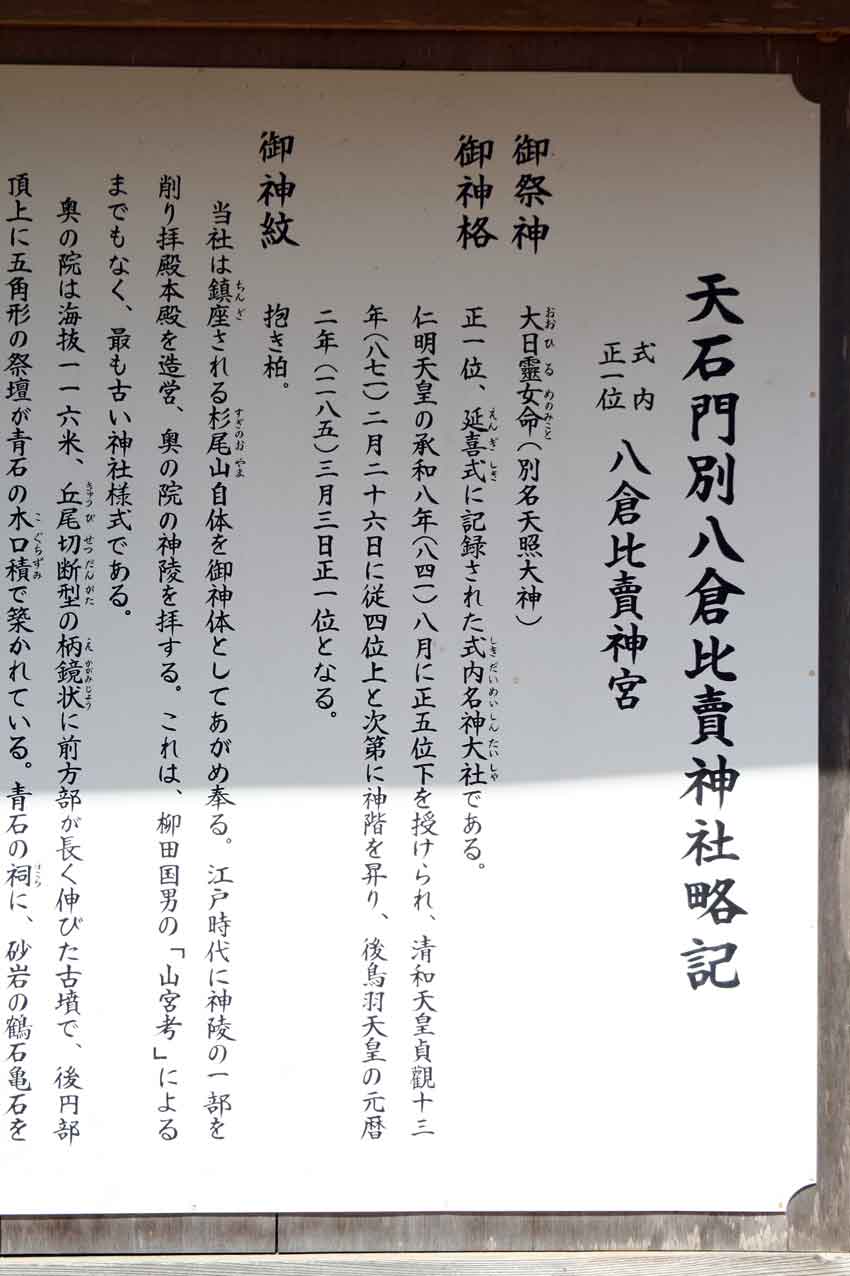 天石門別八倉比賣神社略記
式内
正一位
八倉比賣神宮
御祭神 大日靈女命(別名天照大神)
おおひるめのみこと
御神格 正一位、延喜式に記録された式内名神大社である。
えんぎしき しきだいめいしんたいしゃ
仁明天皇の承和八年(八四一)八月に正五位下を授けられ、清和天皇貞觀十三
年(八七一)二月二十六日に従四位上と次第に神階を昇り、後鳥羽天皇の元暦
二年(一一八五)三月三日正一位となる。
御神紋 抱き柏。
当社は鎮座される杉尾山自体を御神体としてあがめ奉る。江戸時代に神陵の一部を
ちんざ すぎのおやま
削り拝殿本殿を造営、奥の院の神陵を拝する。これは、柳田国男の「山宮考」による
までもなく、最も古い神社様式である。
奥の院は海抜一一六米、丘尾切断型の柄鏡状に前方部が長く伸びた古墳で、後円部
きゅうびせつだんがた えかがみじょう
頂上に五角形の祭壇が青石の木口積で築かれている。青石の祠に、砂岩の鶴石亀石を
こぐちずみ ほこら